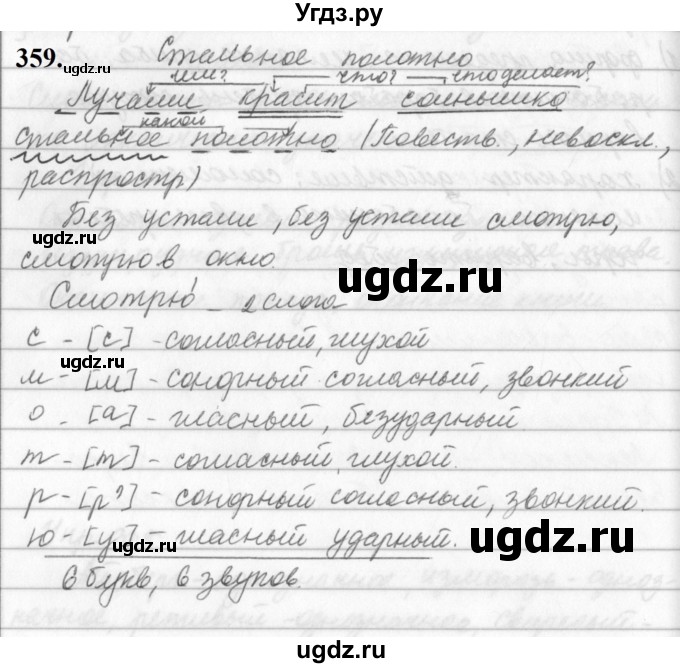 Угдз.ру
359. Стальное полотно
чем? что? что делает?
Лучами красит солнышко
какой
стальное полотно (Повеств., невоскл.,
распростр)
Без устали, без устали смотрю,
смотрю в окно.
Смотрю - 2 слога
с - [с] - согласный, глухой
м - [м] - сонорный согласный, звонкий
о - [а] - гласный, безударный.
т - [т] - согласный глухой.
р - [р'] - сонорный согласный, звонкий.
ю - [у] - гласный ударный.
6 букв, 6 звуков.
ugdz.ru
ugdz.ru
ugdz.ru
ugdz.ru
ugdz.ru
ugdz.ru
ugdz.ru
Угдз.ру